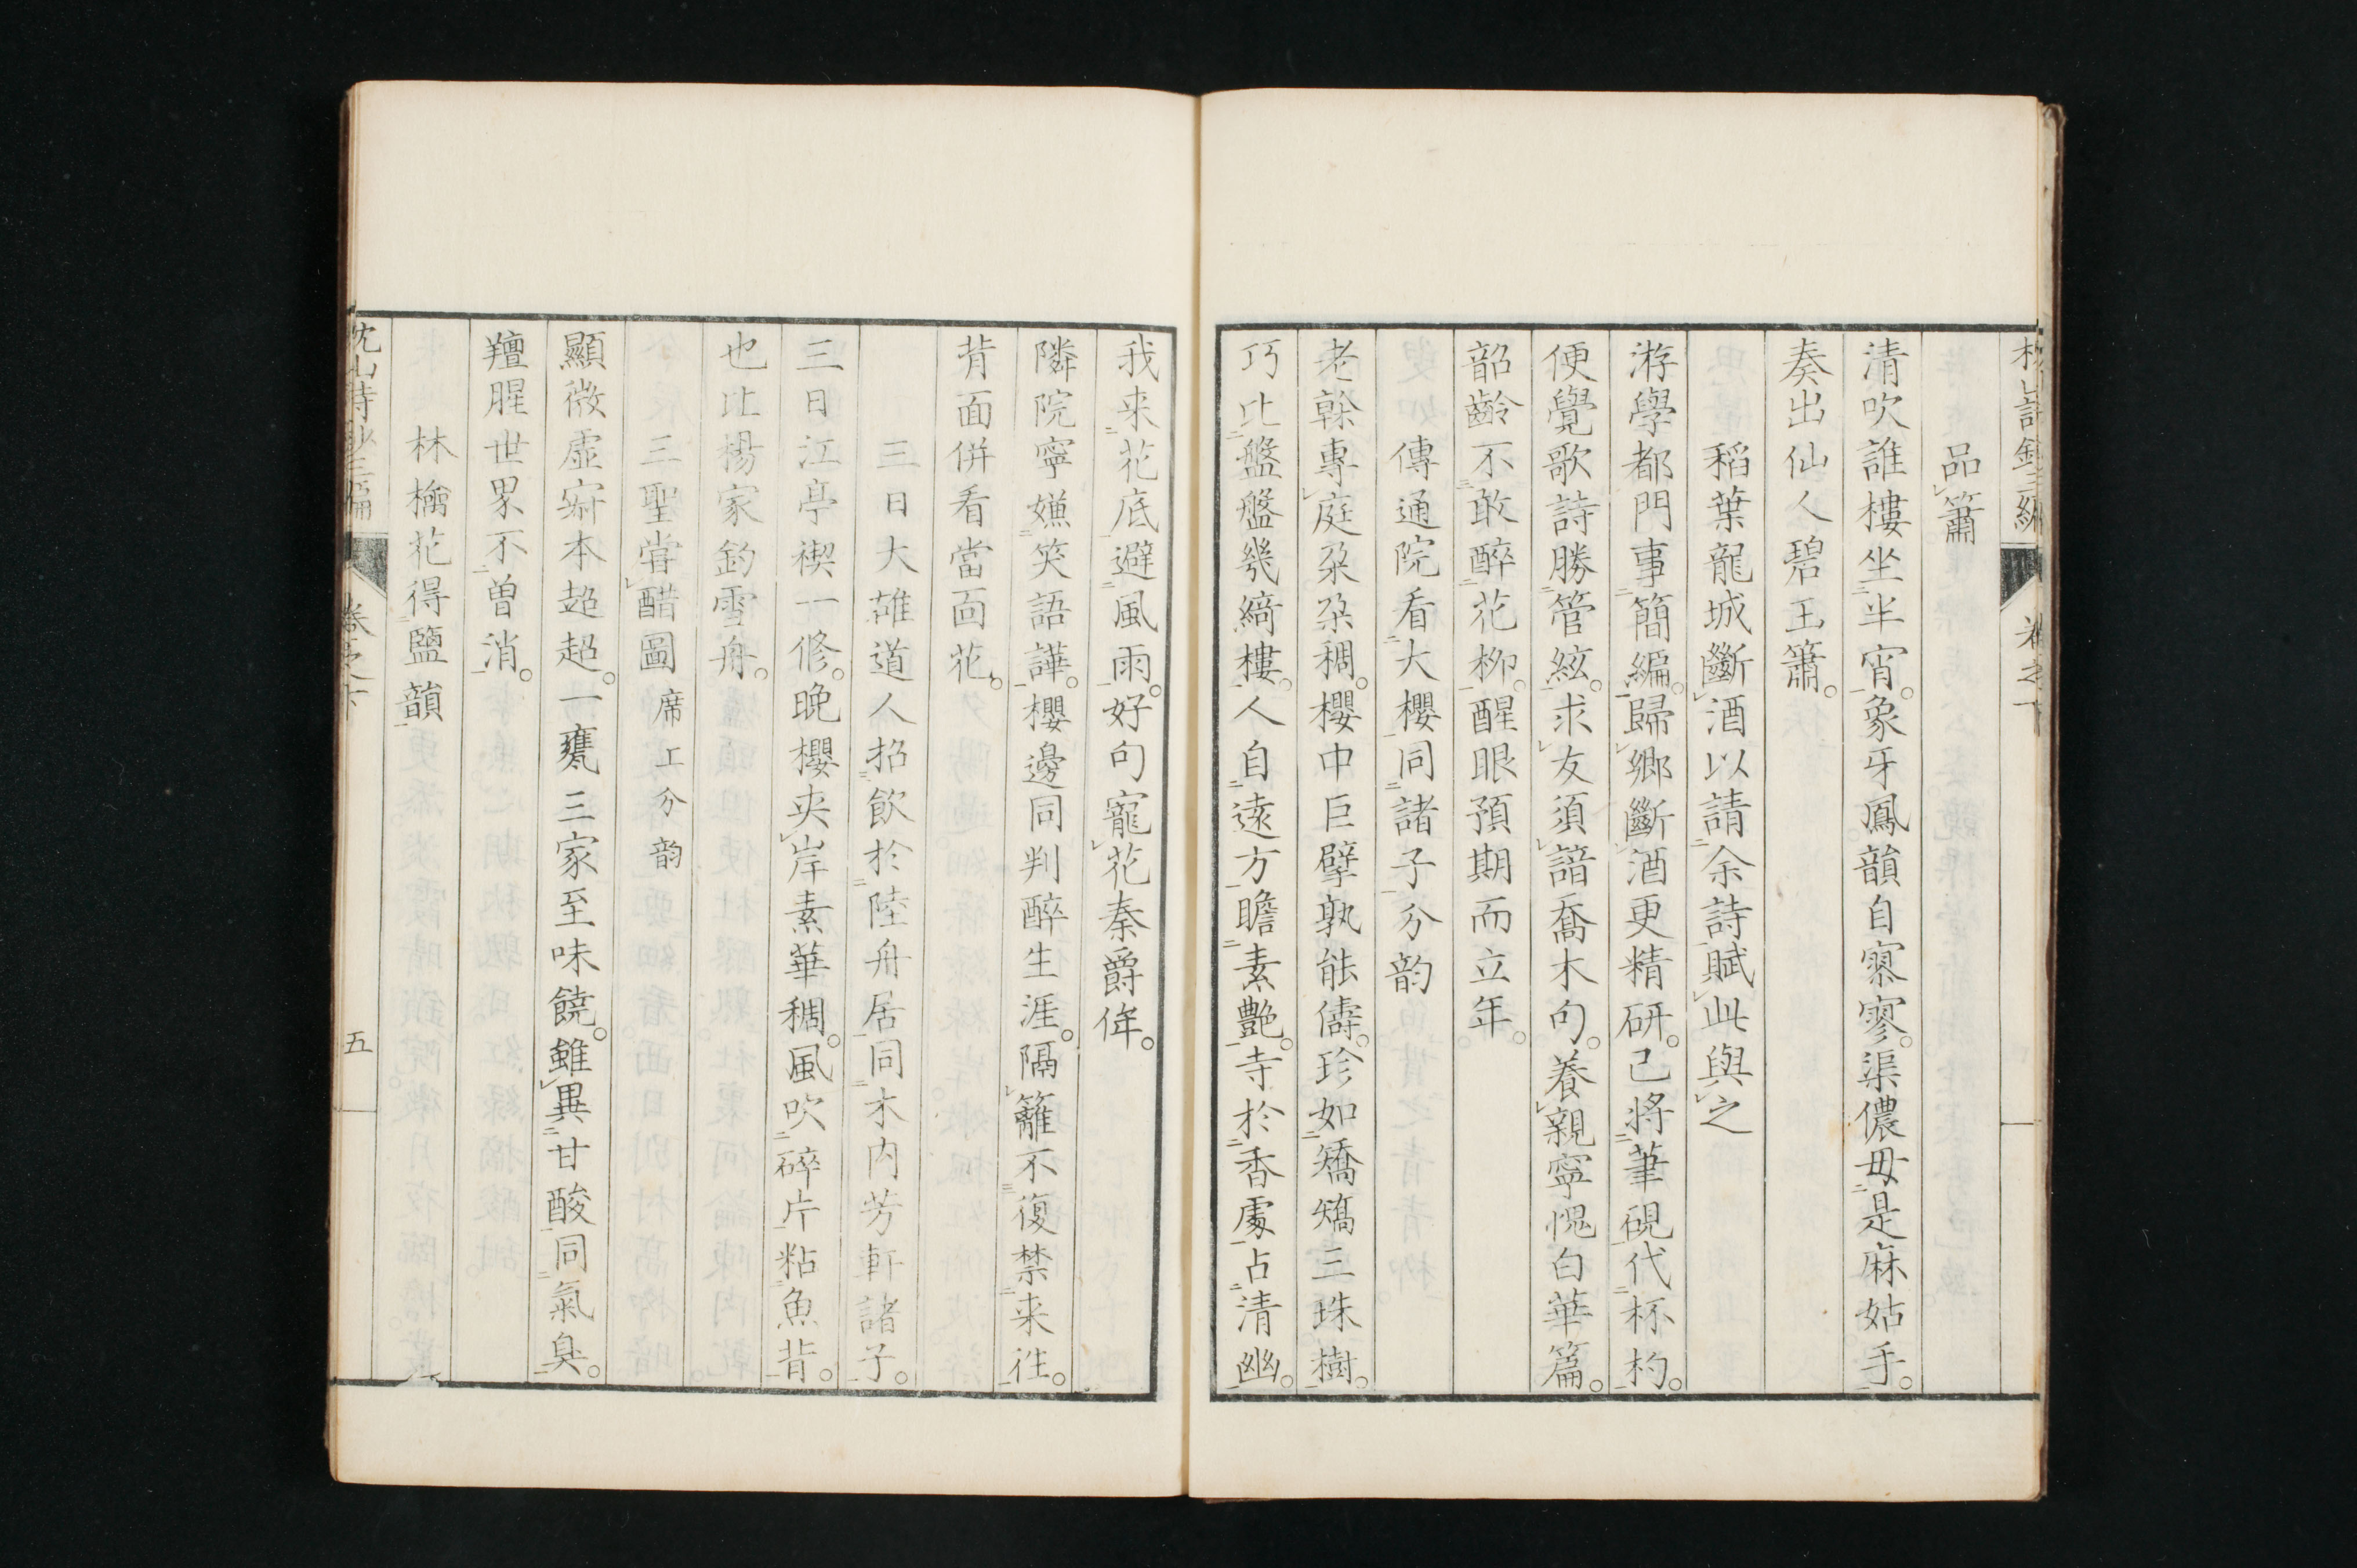 品簫
清吹誰樓坐半宵。象牙鳳韻自寥寥。渠儂毋是麻姑手。
奏出仙人碧玉簫。
稻葉龍城斷酒以請余詩賦此與之
游學都門事簡編。歸鄉斷酒更精研。已將筆硯代杯杓。
便覺歌詩勝管絃。求友須諳喬木句。養親寧愧白華篇。
韶齡不敢醉花柳。醒眼預期而立年。
傳通院看大櫻同諸子分韵
老幹專庭朶朶稠。櫻中巨擘孰能儔。珍如矯矯三珠樹。
巧比盤盤幾綺樓。人自遠方瞻素艷。寺於香處占清幽。
我来花底避風雨。好句寵花秦爵侔。
隣院寧嫌笑語譁。櫻邊同判醉生涯。隔籬不復禁来往。
背面併看當面花。
三日大雄道人招飲於陸舟居同木内芳軒諸子。
三日江亭禊一修。晩櫻夾岸素華稠。風吹碎片粘魚背。
也比楊家釣雪舟。
三聖嘗醋圖 席上分韵
顯微虚寂本超超。一甕三家至味饒。雖異甘酸同氣臭。
羶腥世界不曽消。
林檎花得鹽韻
枕山詩鈔三編 卷之下 五